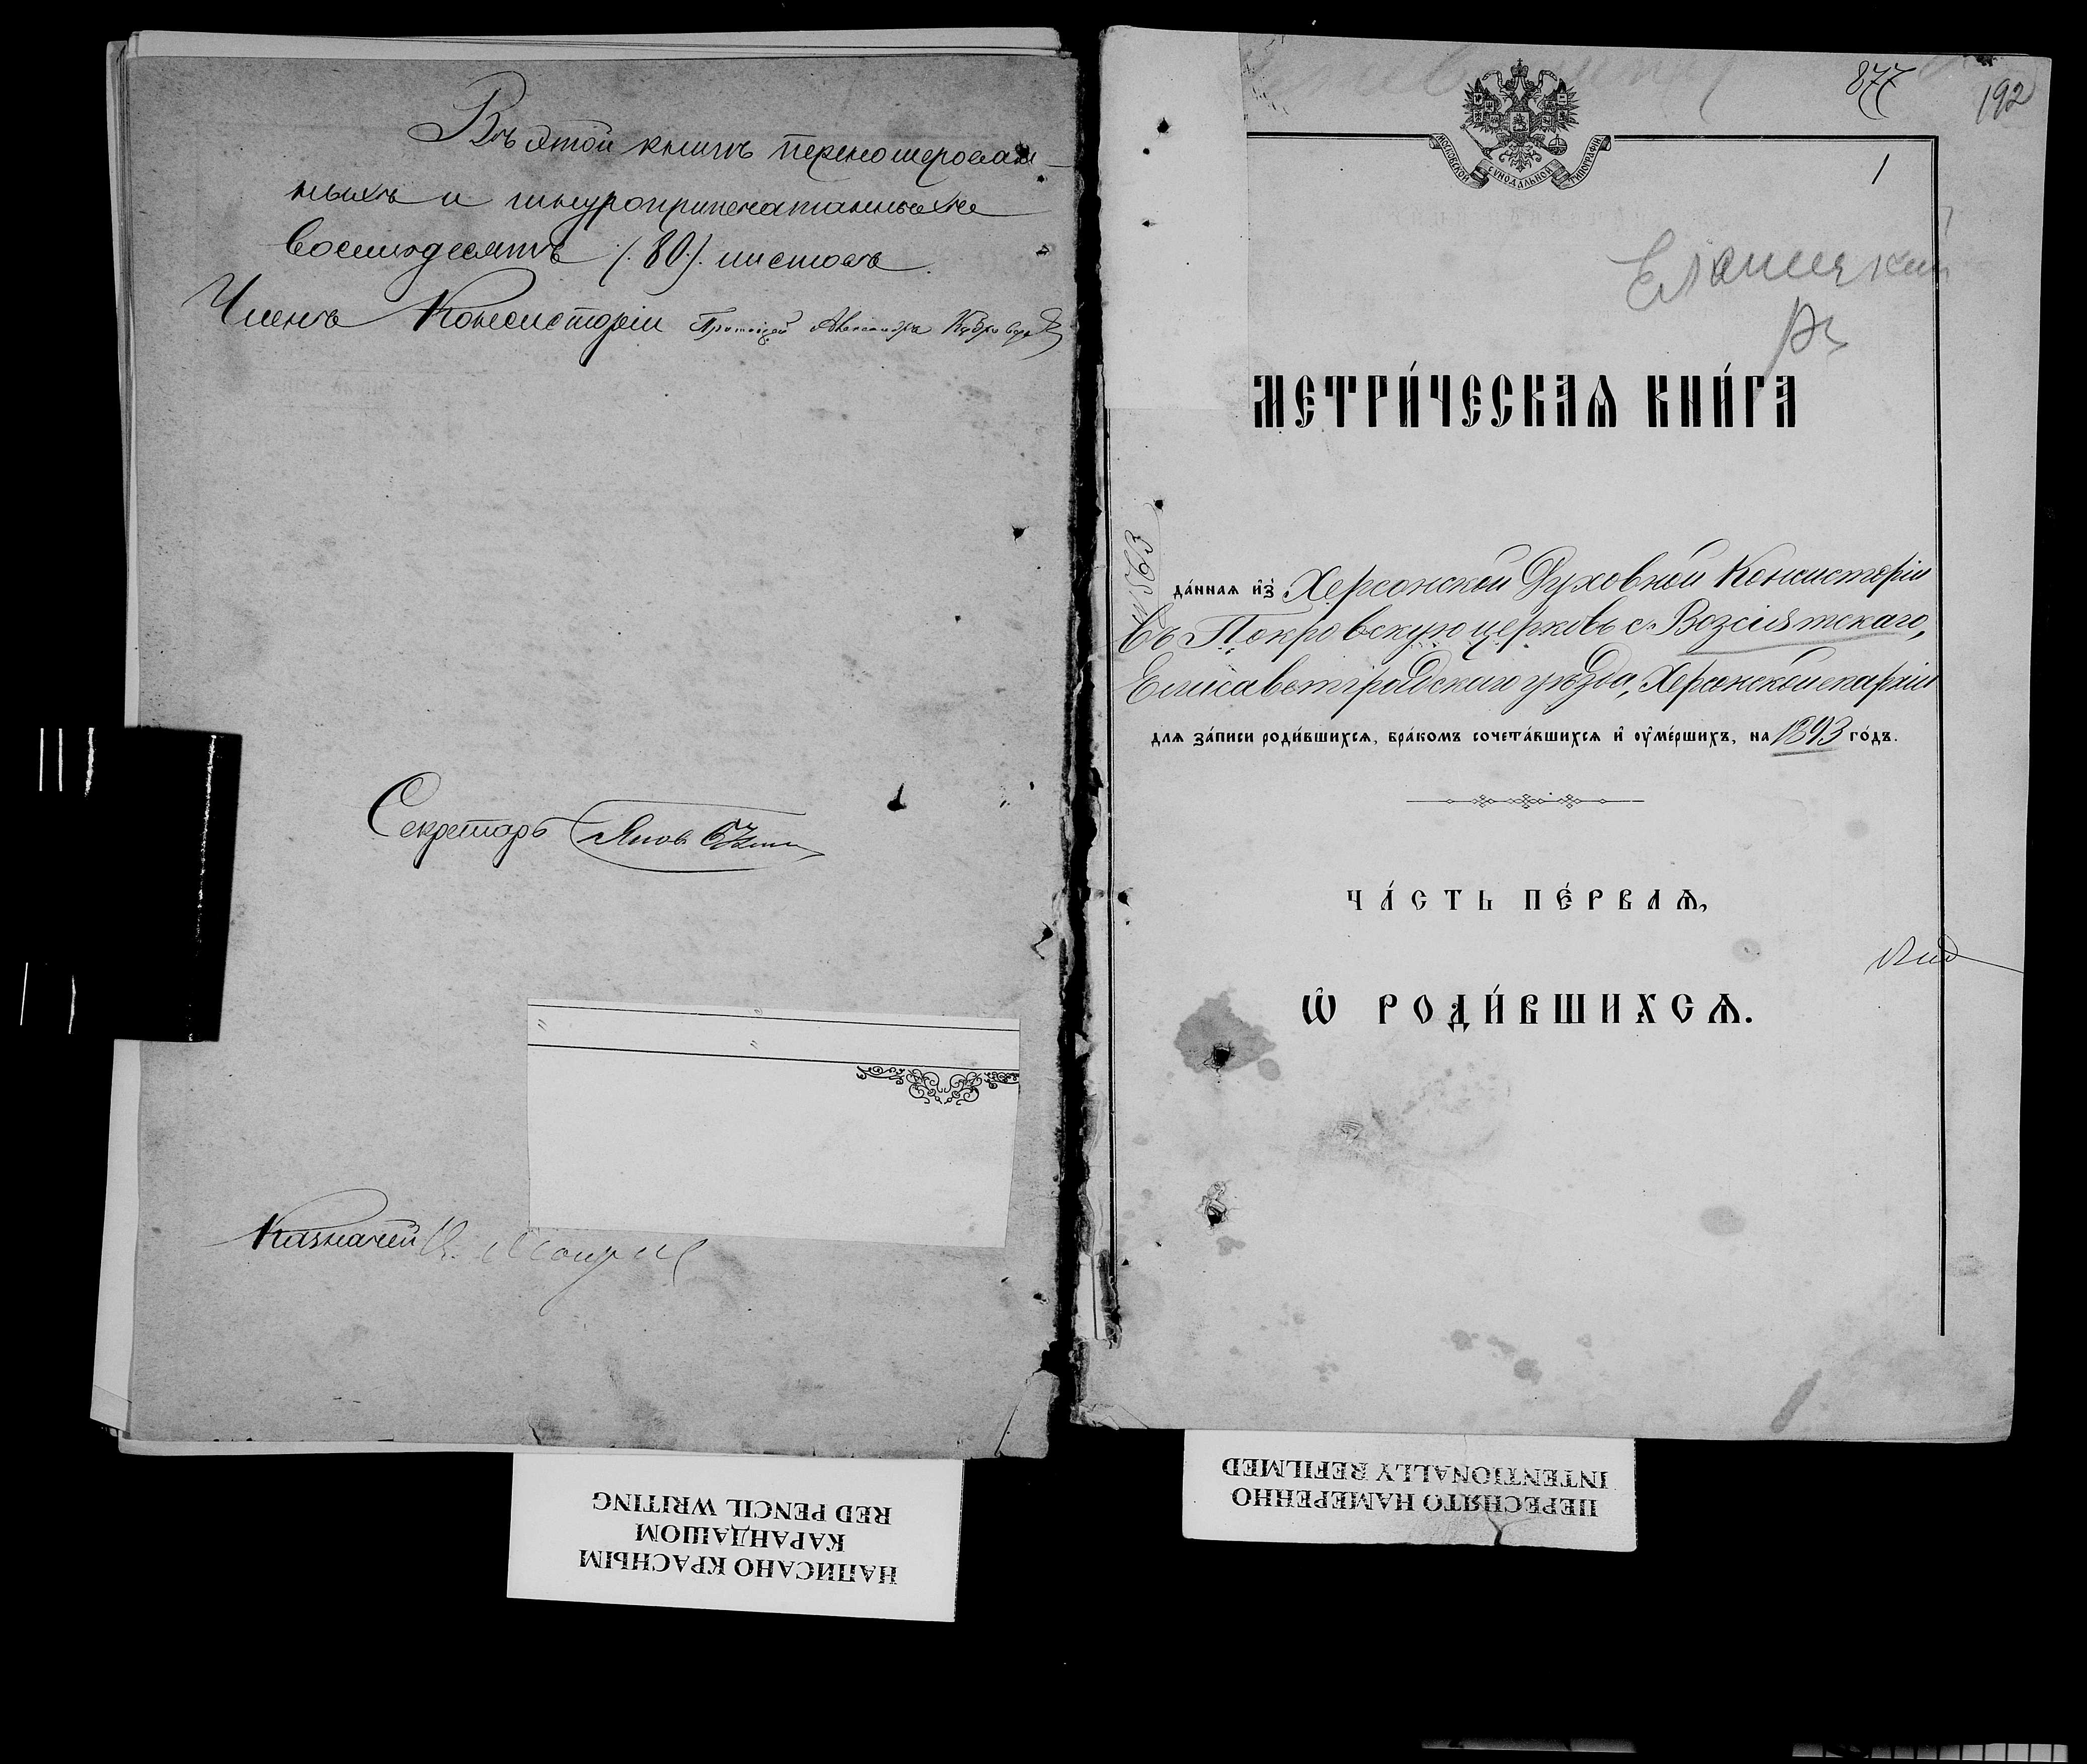 Въ этой книгѣ перенумерован-
ныхъ и шнуроприпечатанныхъ
восемьдесятъ (80) листовъ.
Членъ Консисторіи Протоіерей Александръ
Секретарь
Казначей
НАПИСАНО КРАСНЫМ
КАРАНДАШОМ
RED PENCIL WRITING
877
192
МОСКОВСКОЙ СѴНОДАЛЬНОЙ ТИПОГРАФІИ
1
Еланецкий
МЕТРИ́ЧЕСКАѦ КНИ́ГА
№ 563
да́ннаѧ и҆з̾ Херсонской Духовной Консисторіи
въ Покровскую церковь с. Возсіятскаго,
Елисаветградскаго уѣзда, Херсонской епархіи
длѧ за́писи роди́вшихсѧ, бра́комъ сочета́вшихсѧ и҆ оу҆ме́ршихъ, на 1893 го́дъ.
ЧА́СТЬ ПЕ́РВАѦ,
Ѡ҆ РОДИ́ВШИХСѦ.
ПЕРЕСНЯТО НАМЕРЕННО
INTENTIONALLY REFILMED